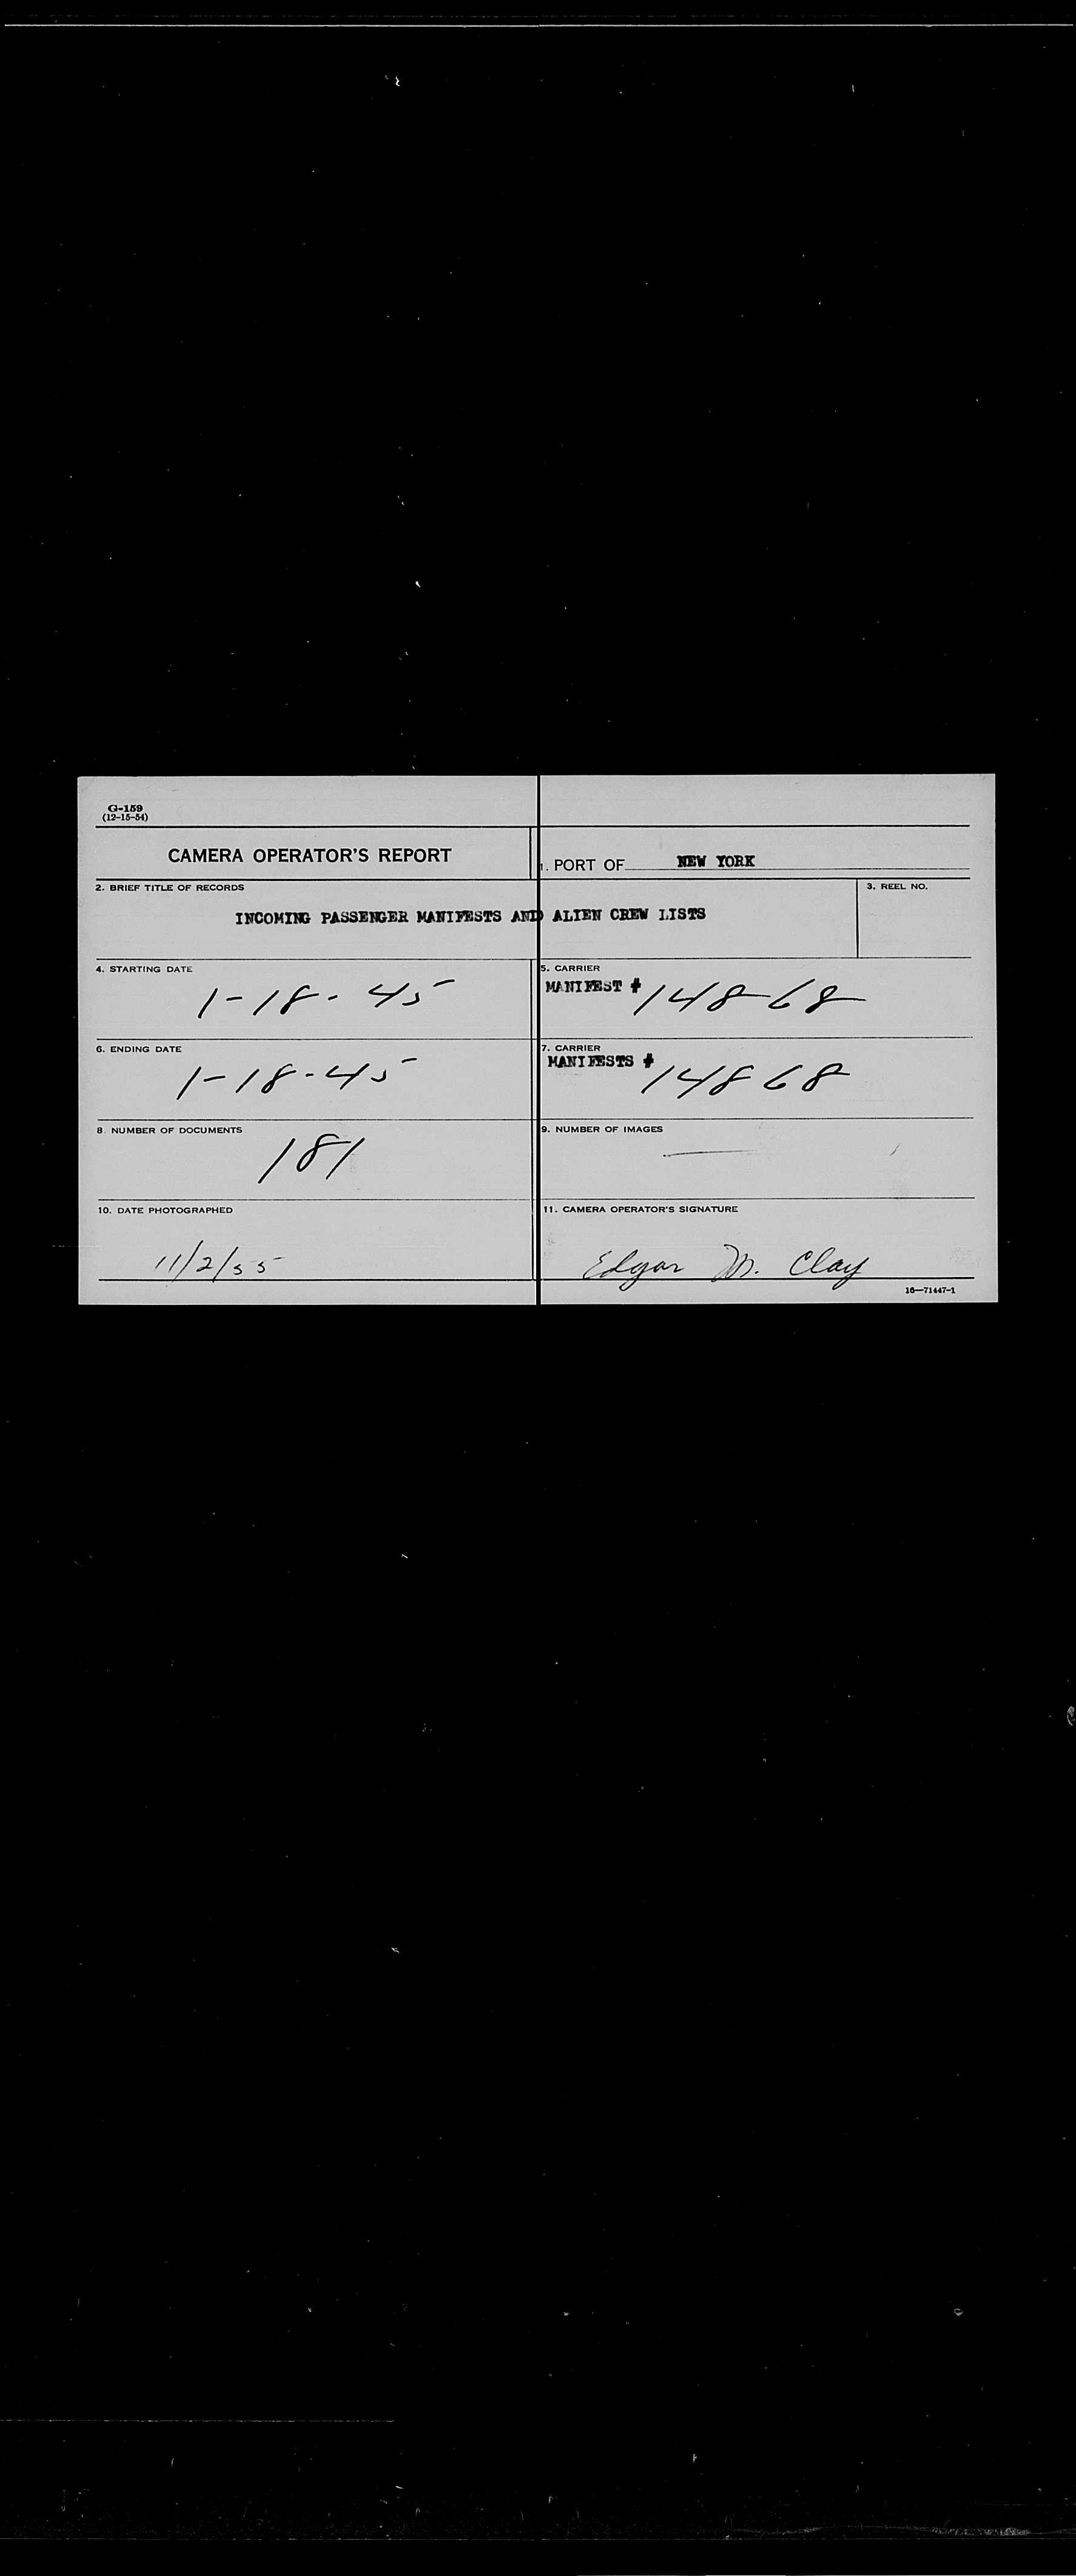 G-159
(12-15-54)
CAMERA OPERATOR'S REPORT
1. PORT OF NEW YORK
2. BRIEF TITLE OF RECORDS
3. REEL NO.
INCOMING PASSENGER MANIFESTS AND ALIEN CREW LISTS
4. STARTING DATE
1-18-45
5. CARRIER
MANIFEST # 14868
6. ENDING DATE
1-18-45
7. CARRIER
MANIFESTS # 14868
8. NUMBER OF DOCUMENTS
181
9. NUMBER OF IMAGES
10. DATE PHOTOGRAPHED
11/2/55
11. CAMERA OPERATOR'S SIGNATURE
Edgar M. Clay
16—71447-1